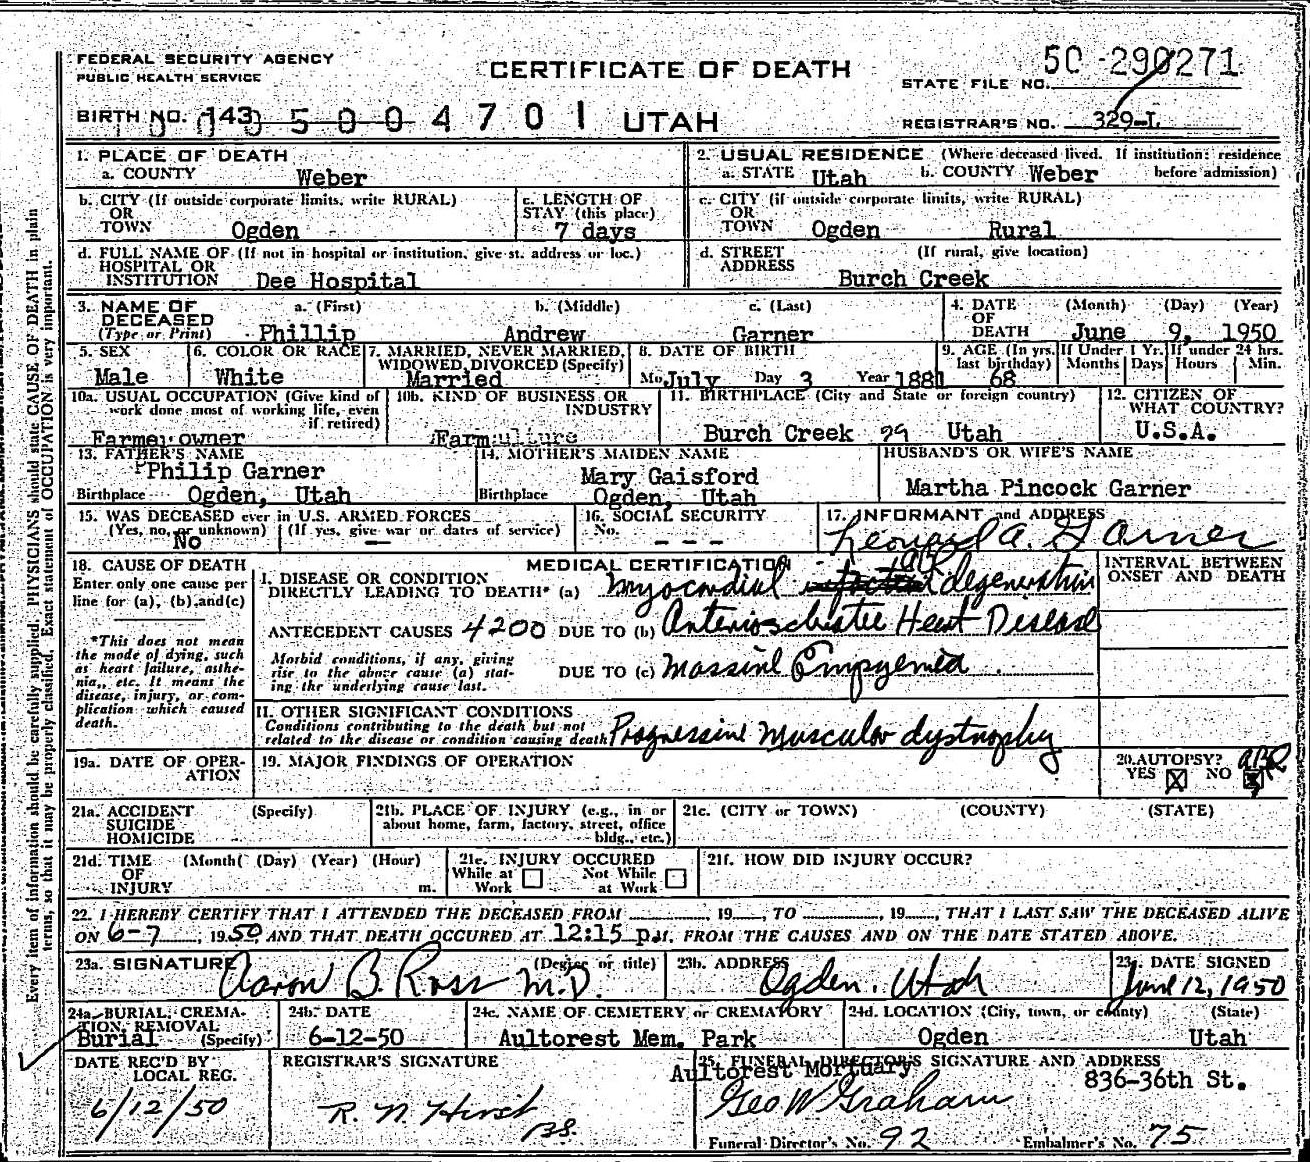 FEDERAL SECURITY AGENCY
PUBLIC HEALTH SERVICE
CERTIFICATE OF DEATH
STATE FILE NO. 50-290271
BIRTH NO. 143 5004701 UTAH
REGISTRAR'S NO. 329-L
1. PLACE OF DEATH
a. COUNTY Weber
2. USUAL RESIDENCE (Where deceased lived. If institution: residence before admission)
a. STATE Utah b. COUNTY Weber
b. CITY (If outside corporate limits, write RURAL)
OR
TOWN Ogden
c. LENGTH OF
STAY (this place)
7 days
c. CITY (if outside corporate limits, write RURAL)
OR
TOWN Ogden Rural
d. FULL NAME OF (If not in hospital or institution, give st. address or loc.)
HOSPITAL OR
INSTITUTION Dee Hospital
d. STREET (If rural, give location)
ADDRESS Burch Creek
3. NAME OF a. (First) b. (Middle) c. (Last)
DECEASED
(Type or Print) Phillip Andrew Garner
4. DATE (Month) (Day) (Year)
OF
DEATH June 9, 1950
5. SEX
Male
6. COLOR OR RACE
White
7. MARRIED, NEVER MARRIED,
WIDOWED, DIVORCED (Specify)
Married
8. DATE OF BIRTH
Mo. July Day 3 Year 1881
9. AGE (In yrs. last birthday) 68
If Under 1 Yr. Months Days
If under 24 hrs. Hours Min.
10a. USUAL OCCUPATION (Give kind of
work done most of working life, even
if retired)
Farmer owner
10b. KIND OF BUSINESS OR
INDUSTRY
Farm
11. BIRTHPLACE (City and State or foreign country)
Burch Creek 29 Utah
12. CITIZEN OF
WHAT COUNTRY?
U.S.A.
13. FATHER'S NAME
Philip Garner
Birthplace Ogden, Utah
14. MOTHER'S MAIDEN NAME
Mary Gaisford
Birthplace Ogden, Utah
HUSBAND'S OR WIFE'S NAME
Martha Pincock Garner
15. WAS DECEASED ever in U.S. ARMED FORCES
(Yes, no, or unknown) (If yes, give war or dates of service)
No —
16. SOCIAL SECURITY
No. - - -
17. INFORMANT and ADDRESS
Leonard A. Garner
18. CAUSE OF DEATH
Enter only one cause per
line for (a), (b), and (c)
*This does not mean
the mode of dying, such
as heart failure, asthe-
nia, etc. It means the
disease, injury, or com-
plication which caused
death.
MEDICAL CERTIFICATION
INTERVAL BETWEEN
ONSET AND DEATH
I. DISEASE OR CONDITION
DIRECTLY LEADING TO DEATH* (a) Myocardial ABR degeneration
ANTECEDENT CAUSES 4200 DUE TO (b) Arteriosclerotic Heart Disease
Morbid conditions, if any, giving
rise to the above cause (a) stat-
ing the underlying cause last.
DUE TO (c) Massive Empyemia
II. OTHER SIGNIFICANT CONDITIONS
Conditions contributing to the death but not
related to the disease or condition causing death Progressive Muscular dystrophy
19a. DATE OF OPER-
ATION
19. MAJOR FINDINGS OF OPERATION
20. AUTOPSY? ABR
YES X NO X
21a. ACCIDENT (Specify)
SUICIDE
HOMICIDE
21b. PLACE OF INJURY (e.g., in or
about home, farm, factory, street, office
bldg., etc.)
21c. (CITY or TOWN) (COUNTY) (STATE)
21d. TIME (Month( (Day) (Year) (Hour)
OF
INJURY m.
21e. INJURY OCCURED
While at Work Not While at Work
21f. HOW DID INJURY OCCUR?
22. I HEREBY CERTIFY THAT I ATTENDED THE DECEASED FROM , 19 , TO , 19 , THAT I LAST SAW THE DECEASED ALIVE
ON 6-7, 1950, AND THAT DEATH OCCURED AT 12:15 p.M. FROM THE CAUSES AND ON THE DATE STATED ABOVE.
23a. SIGNATURE (Degree or title)
Aaron B. Ross M.D.
23b. ADDRESS
Ogden, Utah
23. DATE SIGNED
June 12, 1950
24a. BURIAL, CREMA-
TION, REMOVAL
Burial (Specify)
24b. DATE
6-12-50
24c. NAME OF CEMETERY or CREMATORY
Aultorest Mem. Park
24d. LOCATION (City, town, or county) (State)
Ogden Utah
DATE REC'D BY
LOCAL REG.
6/12/50
REGISTRAR'S SIGNATURE
R. N. Hirst
25. FUNERAL DIRECTOR'S SIGNATURE AND ADDRESS
Aultorest Mortuary 836-36th St.
Geo W Graham
Funeral Director's No. 92 Embalmer's No. 75
Every item of information should be carefully supplied. PHYSICIANS should state CAUSE OF DEATH in plain
terms, so that it may be properly classified. Exact statement of OCCUPATION is very important.